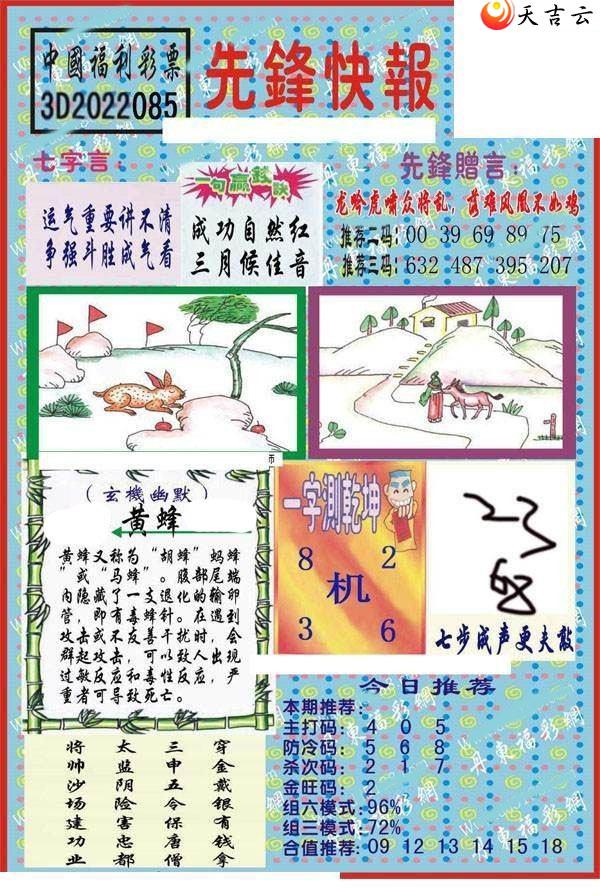 天吉云
中國福利彩票
3D2022085
先鋒快報
七字言：
运气重要讲不清
争强斗胜成气看
一句赢錢诀
成功自然红
三月候佳音
先鋒贈言：
龙吟虎啸众将乱，落难凤凰不如鸡
推荐二码：00 39 69 89 75
推荐三码：632 487 395 207
（玄機幽默）
黄蜂
黄蜂又称为“胡蜂”蚂蜂
”或“马蜂”。腹部尾端
内隐藏了一支退化的输卵
管，即有毒蜂针。在遇到
攻击或不友善干扰时，会
群起攻击，可以致人出现
过敏反应和毒性反应，严
重者可导致死亡。
一字測乾坤
8 2
机
3 6
七步成声更夫敲
将帅沙场建功业
太监阴险害忠都
三申五令保唐僧
穿金戴银有钱拿
今日推荐
本期推荐：
主打码：4 0 5
防冷码：5 6 8
杀次码：2 1 7
金旺码：2
组六模式：96%
组三模式：72%
合值推荐：09 12 13 14 15 18
丹東福彩網